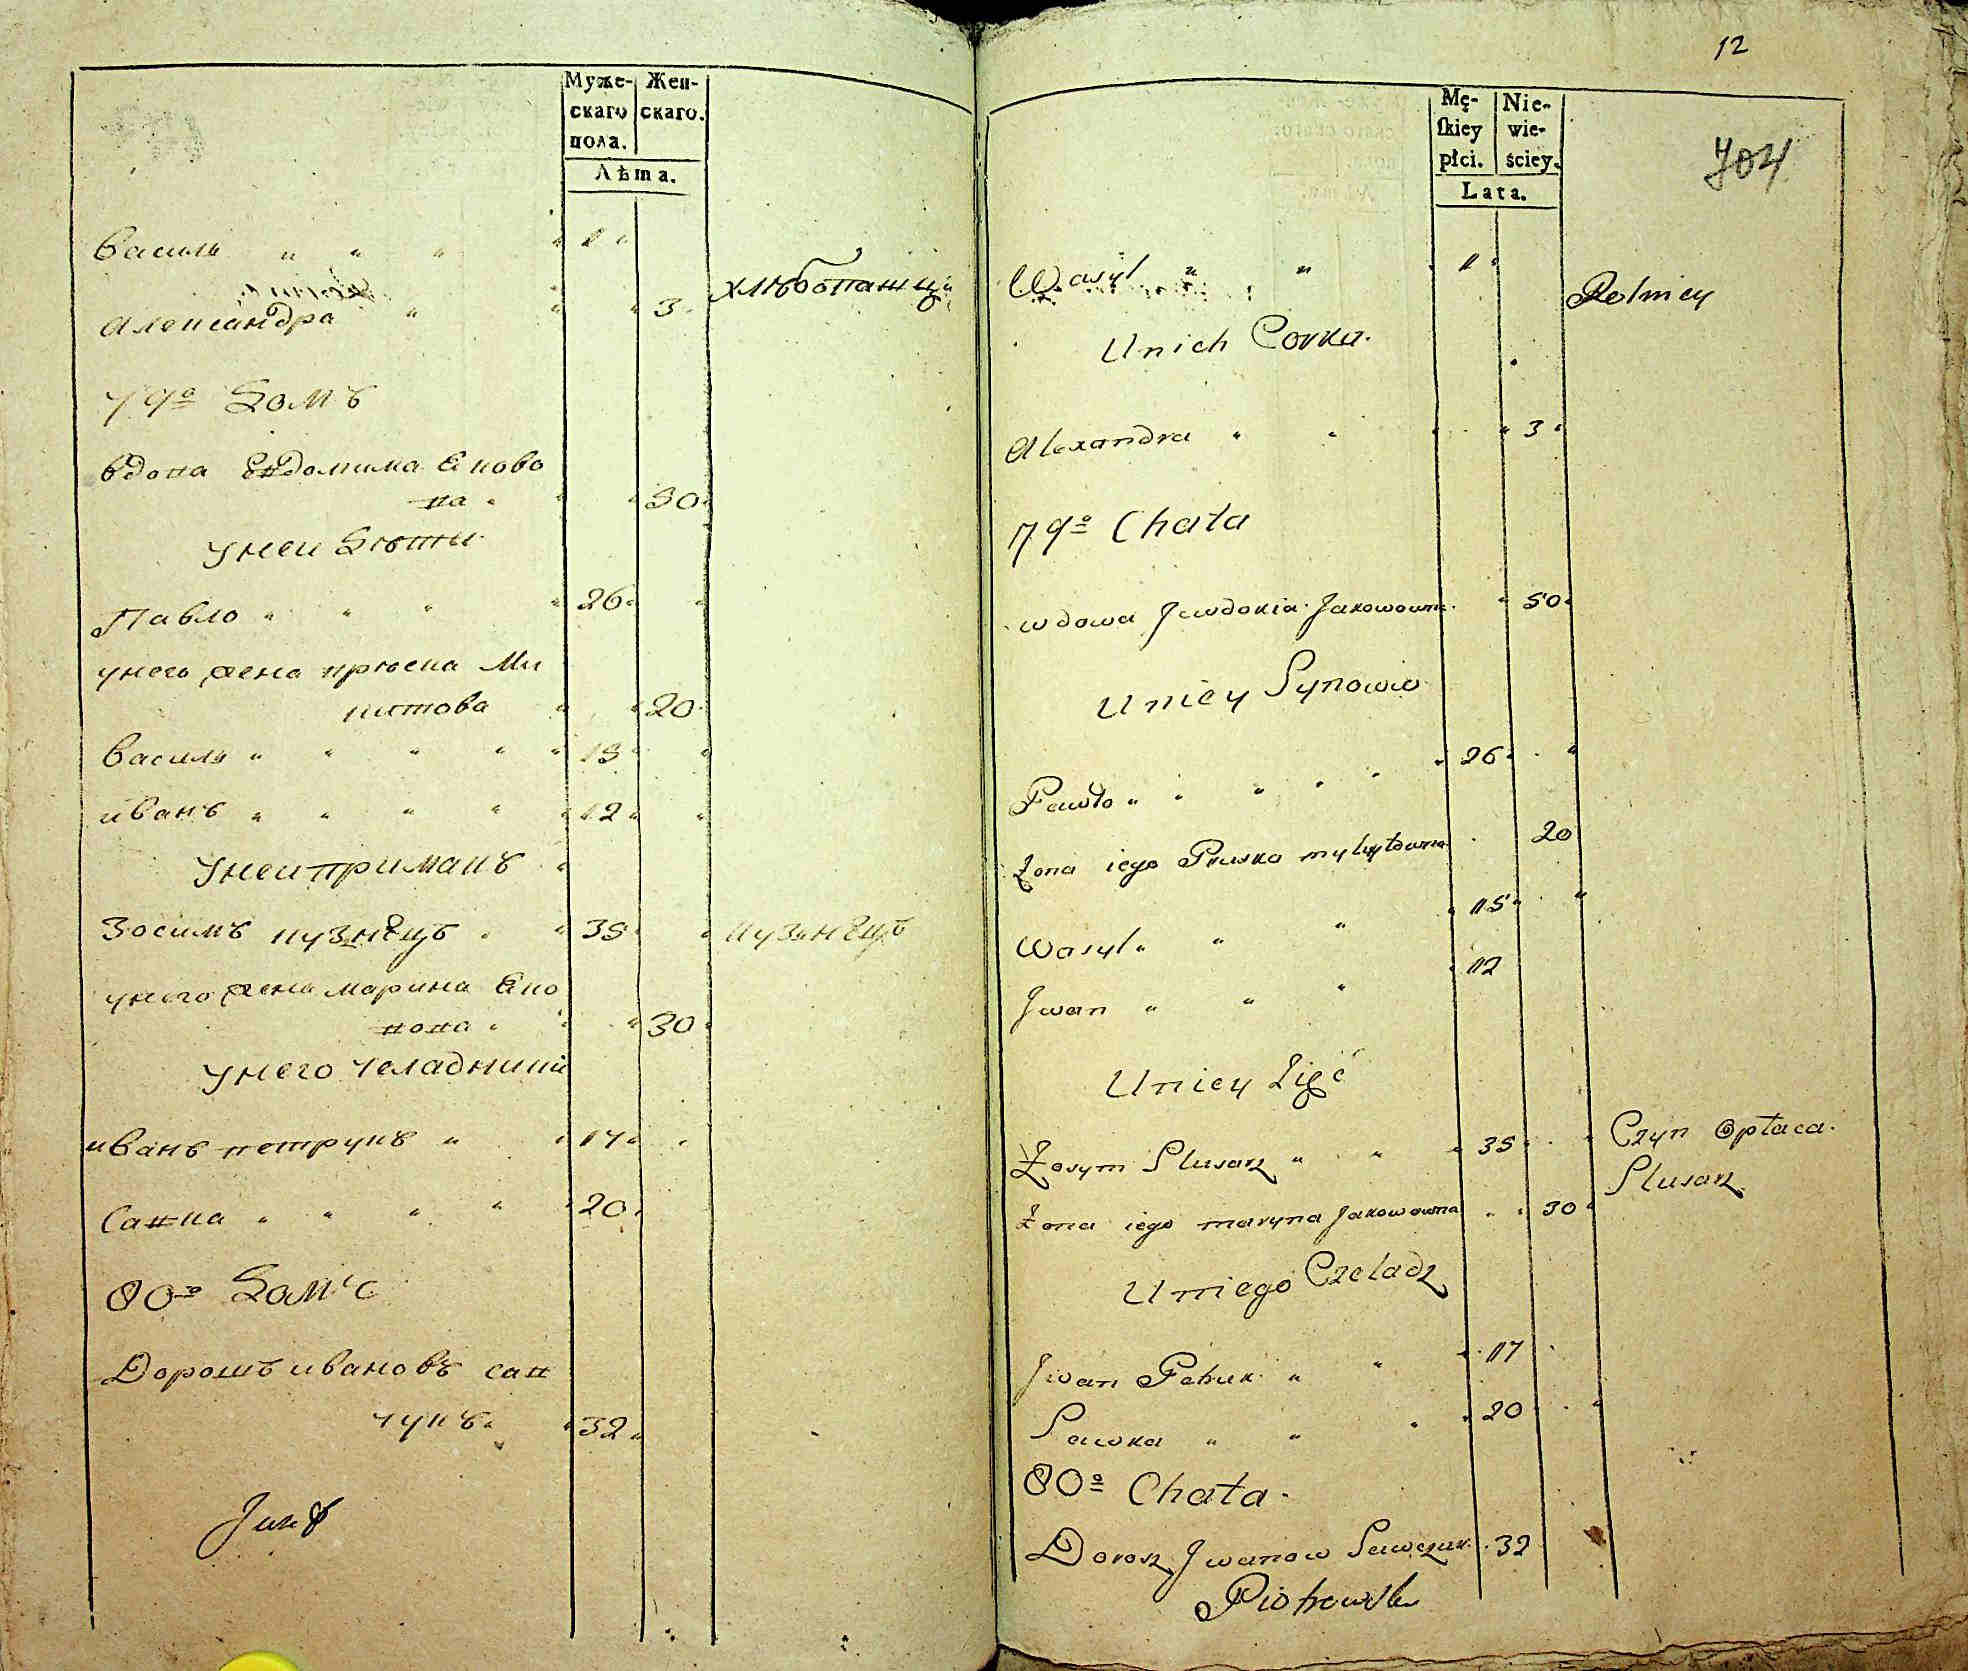 Муже-
скаго
пола.
Жен-
скаго.
Лѣта.
василь " " " " 1 "
александра " " " 3
хлѣбопашцы
79º Домъ
вдова Евдокима Яково
ва " " 50
У неи Дѣти
Павло " " " " 26 " "
у него жена прѣска Ми
китова " " 20
василь " " " " " 15 " "
иванъ " " " " " 12 " "
У неи приманъ "
Зосимъ кузнѣцъ " " 35 " кузнѣцъ
у него жена марина Яко
вова " " " 30 "
У него челадники
иванъ петрукъ " " 17 " "
Савка " " " " " 20 "
80º Домъ
Дорошъ ивановъ сав
чукъ " " 32 "
12
704
Mę-
skiey
płci.
Nie-
wie-
ściey.
Lata.
Wasyl " " 1 "
Rolnicy
U nich Corka.
Alexandra " " " " " 3 "
79º Chata
wdowa Jewdokia Jakowowna " 50 "
U niey Synowie
Pawło " " " " " " 26 " "
Żona iego Pruska mykytowna 20
Wasyl " " " " 15 " "
Jwan " " " " 12
U niey Zięć
Zosym Slusarz " " " 35 " "
Czyn opłaca.
Slusarz
Żona iego maryna Jakowowna " " 30 "
U niego Czeladz
Jwan Petruk " " " 17
Sawka " " " " 20 "
80º Chata
Dorosz Jwanow Sawczuk 32